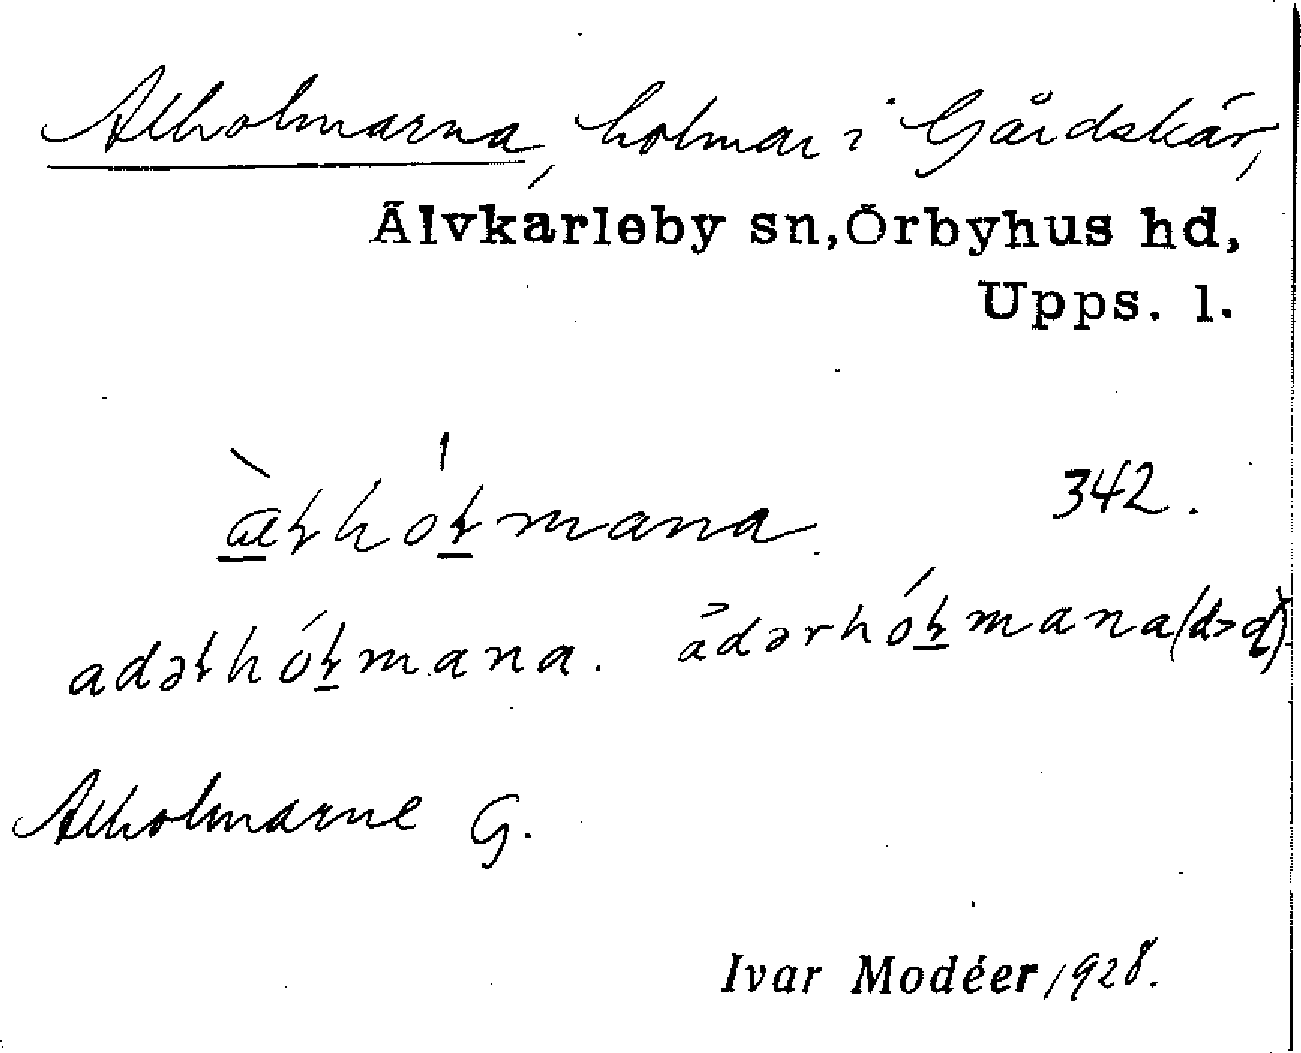 Alholmarna, holmar i Gårdskär,
Älvkarleby sn, Örbyhus hd,
Upps. l.
342.
Alholmarne G.
Ivar Modéer 1928.